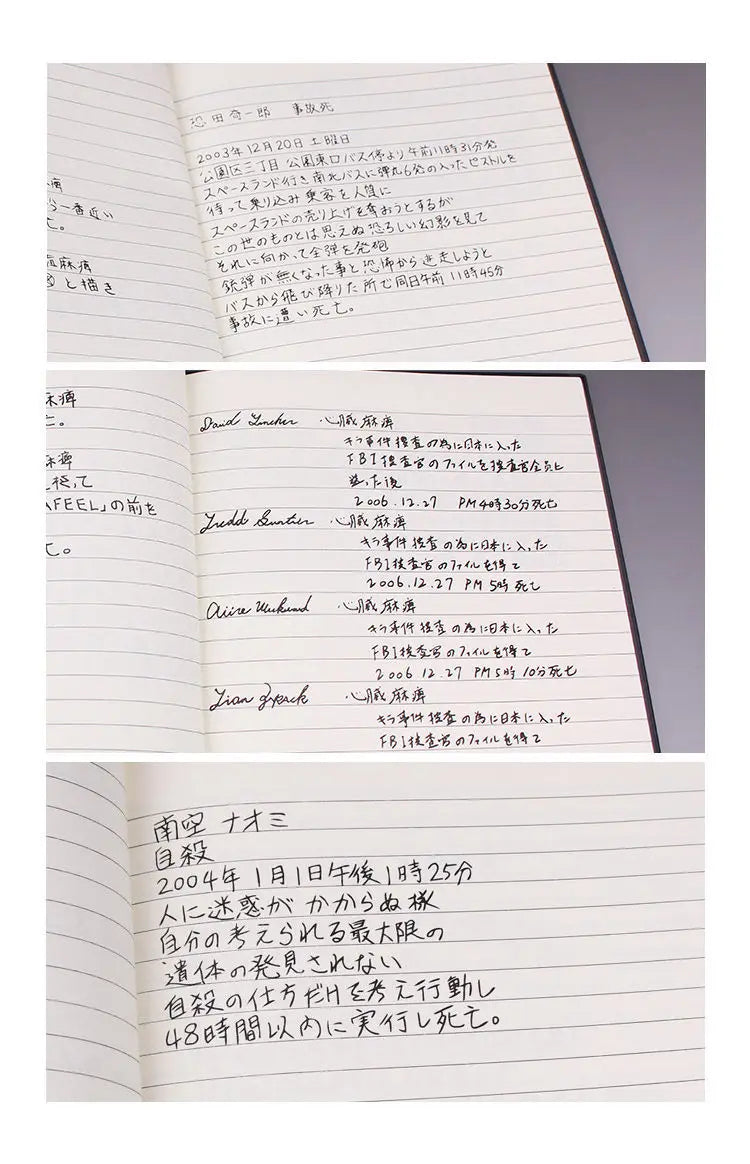 恐田奇一郎 事故死
2003年12月20日土曜日
公園区三丁目 公園東口バス停より午前11時31分発
スペースランド行き南北バスに弾丸6発の入ったピストルを
持って乗り込み乗客を人質に
スペースランドの売り上げを奪おうとするが
この世のものとは思えぬ恐ろしい幻影を見て
それに向かって全弾を発砲
銃弾が無くなった事と恐怖から逃走しようと
バスから飛び降りた所で同日午前11時45分
事故に遭い死亡。
一番近い
亡。
麻痺
と描き
麻痺
亡。
麻痺
AFEEL」の前を
亡。
心臓麻痺
キラ事件捜査の為に日本に入った
FBI捜査官のファイルを捜査官全員に
送った後
2006.12.27 PM4時30分死亡
心臓麻痺
キラ事件捜査の為に日本に入った
FBI捜査官のファイルを得て
2006.12.27 PM5時死亡
心臓麻痺
キラ事件捜査の為に日本に入った
FBI捜査官のファイルを得て
2006 12.27 PM5時10分死亡
心臓麻痺
キラ事件捜査の為に日本に入った
FBI捜査官のファイルを得て
南空 ナオミ
自殺
2004年1月1日午後1時25分
人に迷惑がかからぬ様
自分の考えられる最大限の
遺体の発見されない
自殺の仕方だけを考え行動し
48時間以内に実行し死亡。